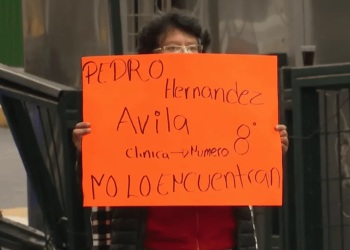 PEDRO Hernandez
Avila
Clinica → Numero 8°
NO LO ENCUENTRAN